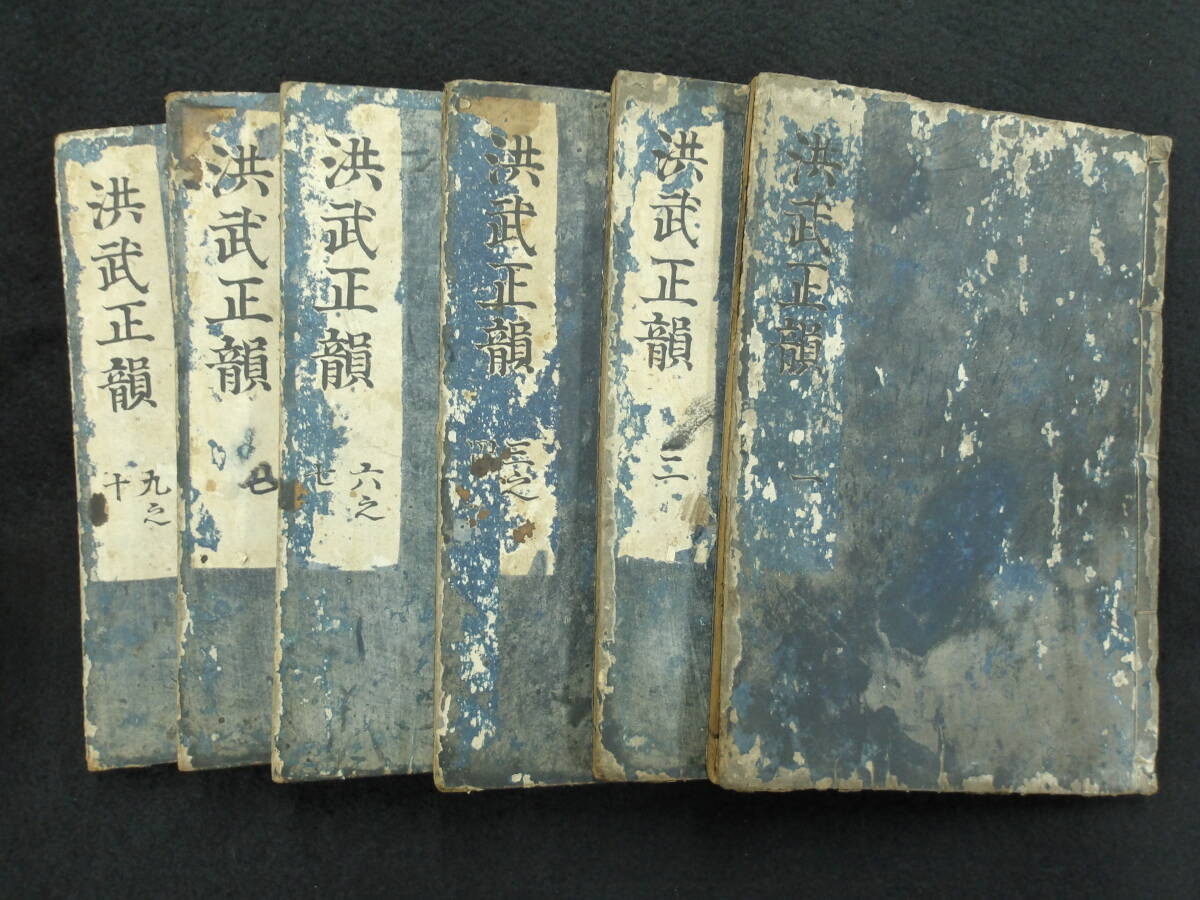 洪武正韻
一
洪武正韻
二
洪武正韻
三之
四
洪武正韻
六之
七
洪武正韻
洪武正韻
九之
十